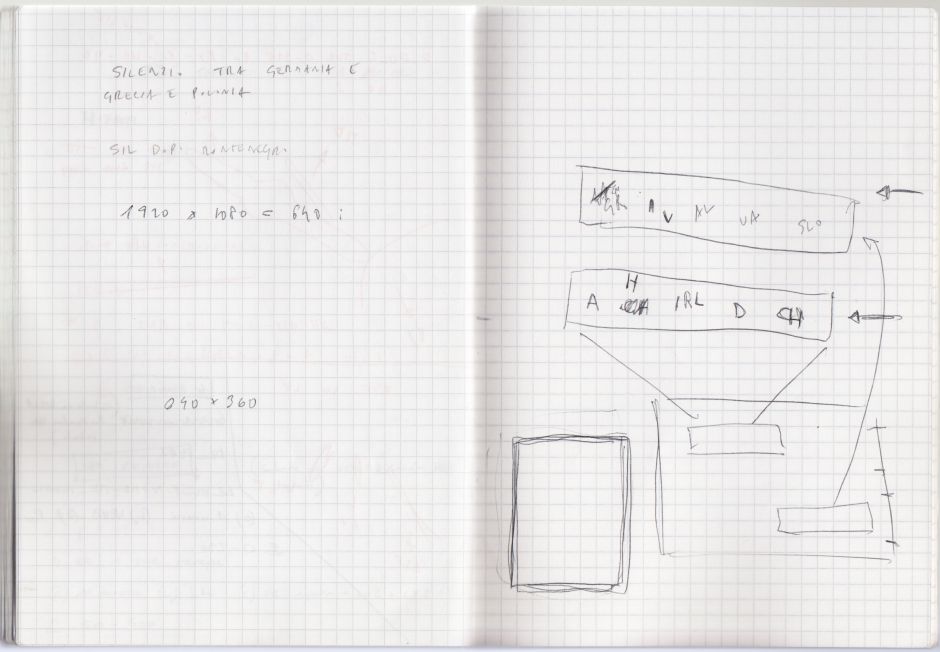 SILENZI. TRA GERMANIA E
GRECIA E POLONIA
SIL DOPO MONTENEGRO
1920 x 1080 = 640 :
640 x 360
GR AV UA SLO
H
A IRL D CH